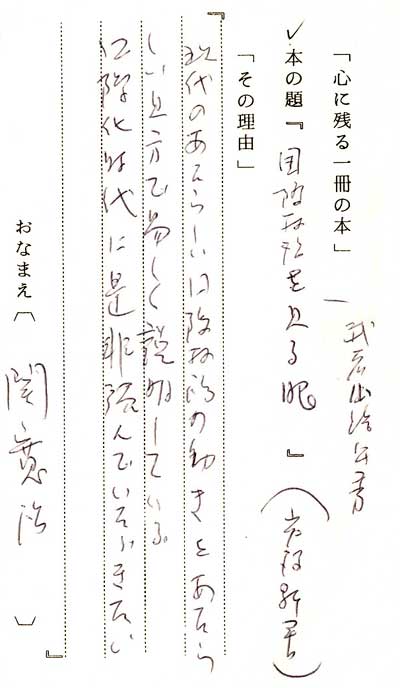 「心に残る一冊の本」
武者小路公秀著
✓本の題『国際政治を見る眼』(岩波新書)
「その理由」
現代のあたらしい国際政治の動きをあたら
しい見方で易しく説明している。
国際化時代に是非読んでいただきたい
おなまえ〔関寛治〕